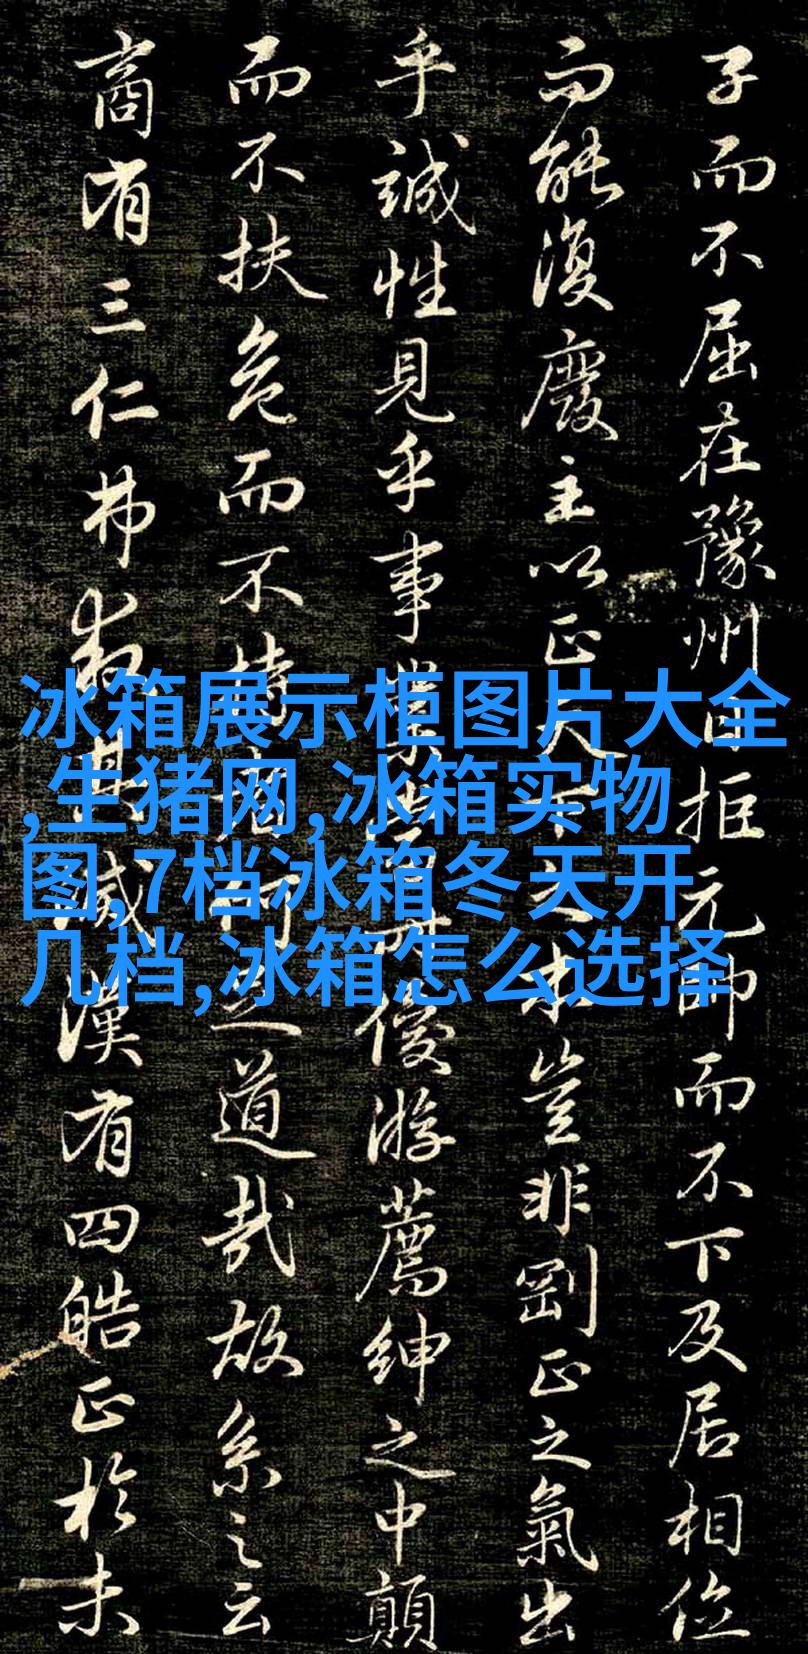 子而不屈在豫州日拒元帥而不下及居相位
而能復廢主以正天下之本豈非剛正之氣出
乎誠性見乎事業當優游薦紳之中顛
而不扶危而不持者何之道哉故系之云
商有三仁弗救其滅漢有四皓正於未
冰箱展示柜图片大全
,生猪网,冰箱实物
图,7档冰箱冬天开
几档,冰箱怎么选择